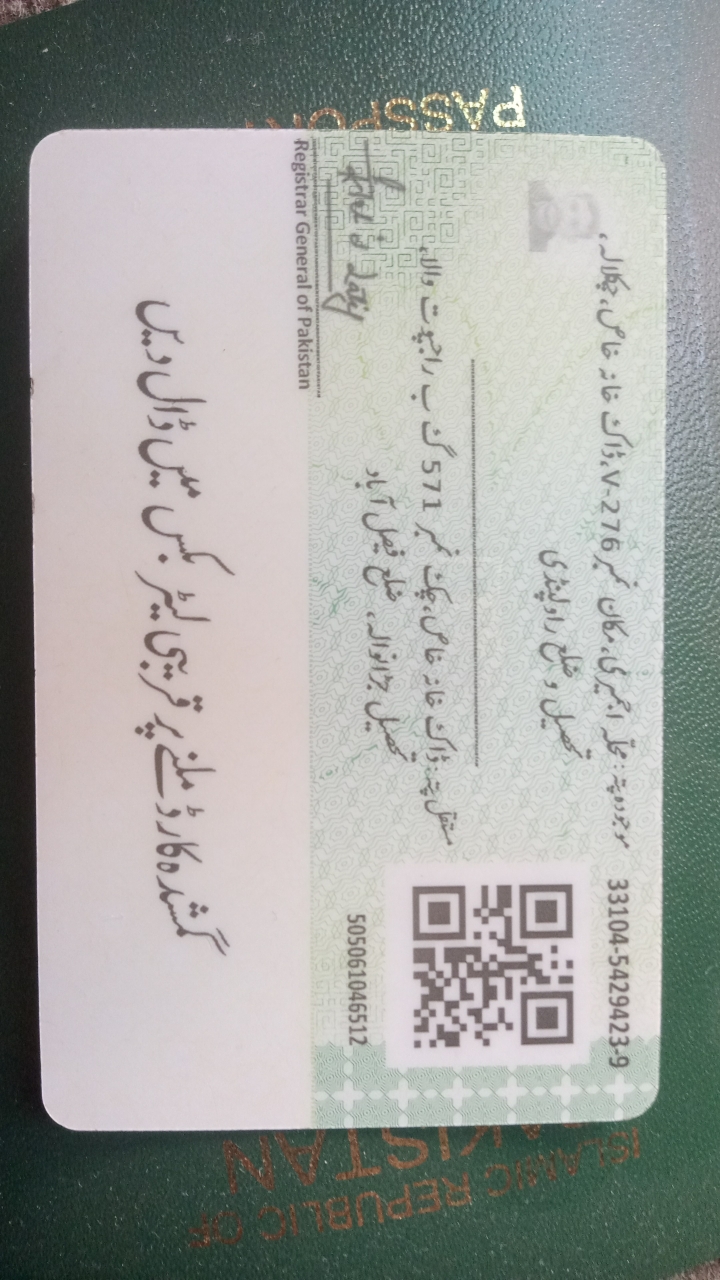 33104-5429423-9
موجودہ پتہ: محلہ اجمیری، مکان نمبر V-276، ڈاک خانہ خاص، چکلالہ،
تحصیل و ضلع راولپنڈی
مستقل پتہ: ڈاک خانہ خاص، چک نمبر 571 گ ب راجپوت والا،
تحصیل جڑانوالہ، ضلع فیصل آباد
505061046512
Registrar General of Pakistan
گمشدہ کارڈ ملنے پر قریبی لیٹر بکس میں ڈال دیں
PASSPORT
ISLAMIC REPUBLIC OF
PAKISTAN